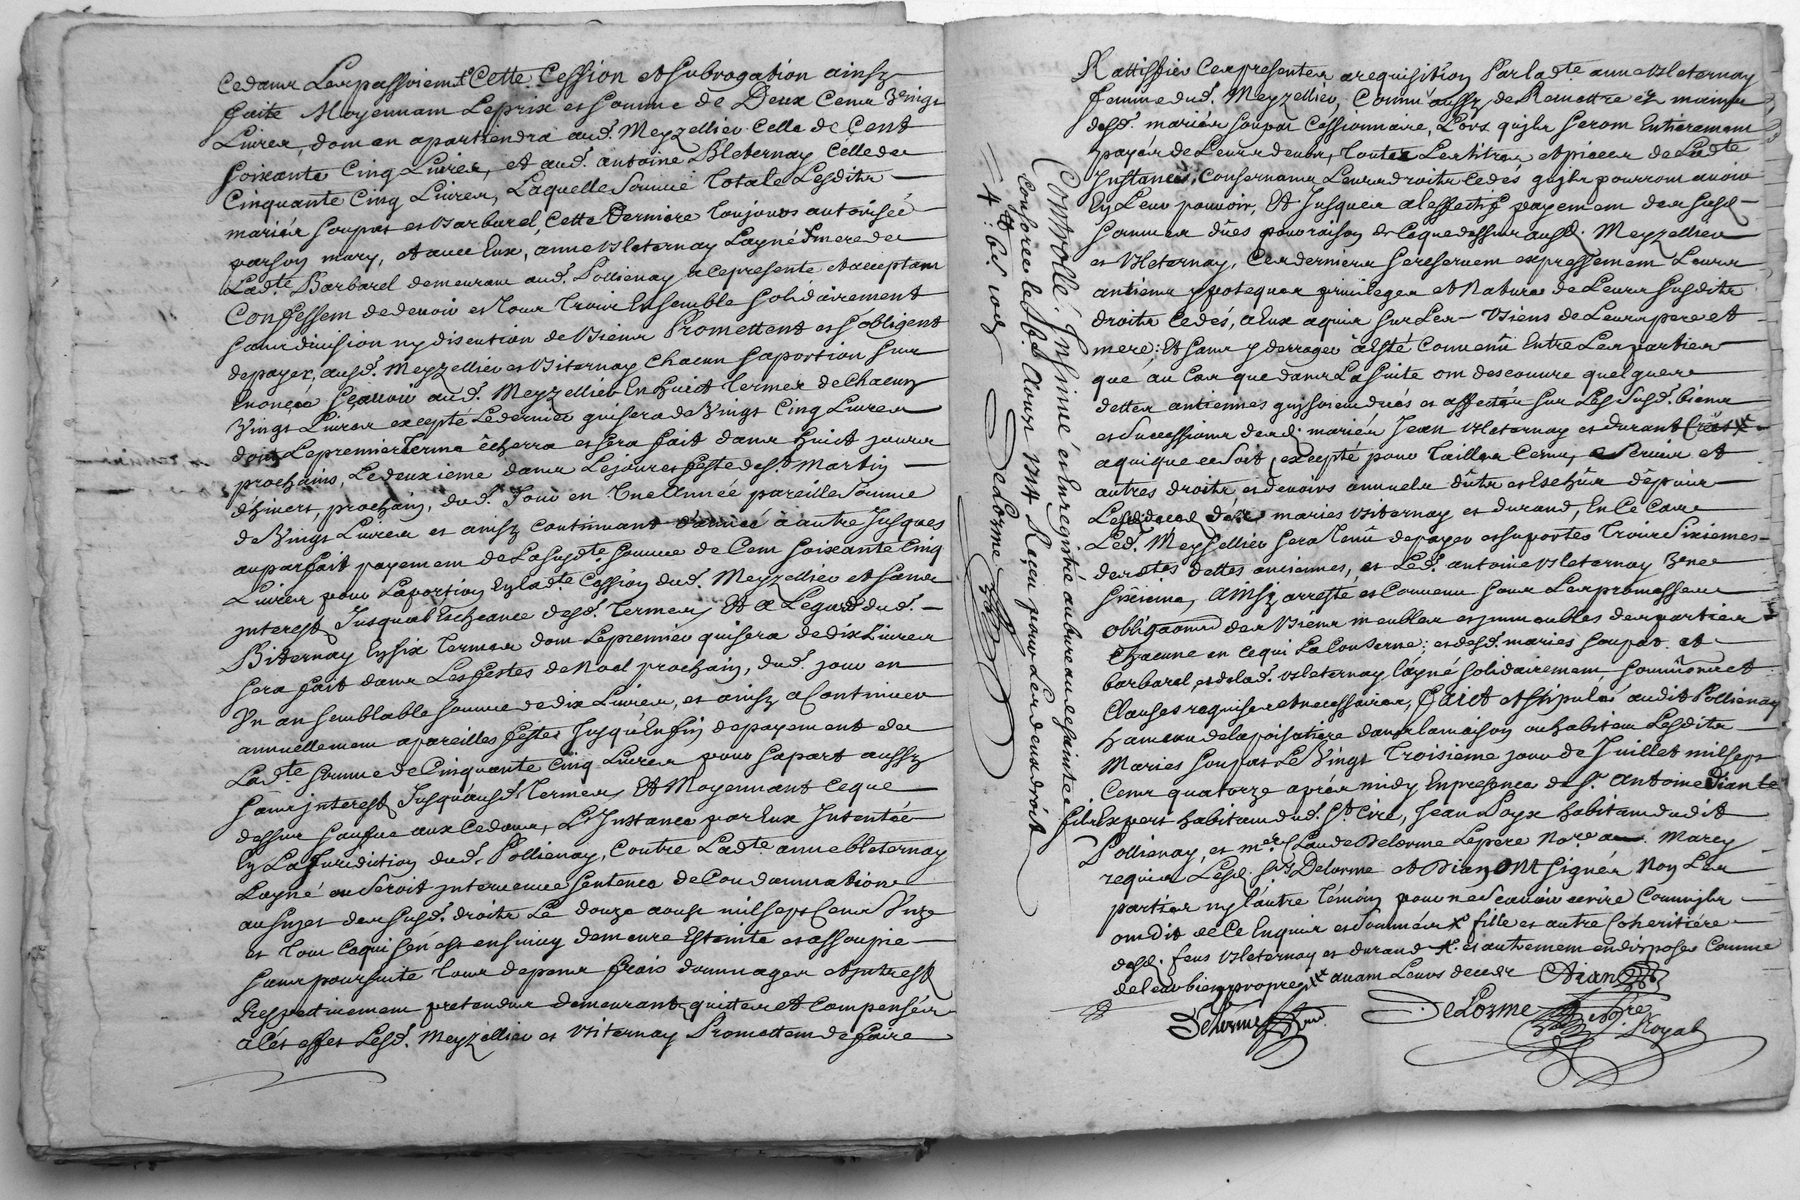 cedans Les passoient Cette Cession et subrogation ainsy
faite Moyennant Le prix et somme de Deux Cens Vingt
Livres, dont en apartiendra aud. Meyzellier Celle de Cent
soixante Cinq Livres, et aud. antoine Bleternay Celle de
Cinquante Cinq Livres, Laquelle Somme Totale Lesdits
mariés soupat et Barbarel, Cette Derniere Toujours autorisée
par son mary, et avec Eux, anne Bleternay Laynée mere de
Lad.te Barbarel demeurant aud. Pollienay a ce presente et acceptant
Confessent de devoir et tous Trois Ensemble solidairement
sans division ny discution de Biens Promettent et s'obligent
de payer, ausd. Meyzellier et Viternay Chacun sa portion sus
Enoncée Sçavoir aud. Meyzellier En huict Termes de Chacun
Vingt Livres excepté Le dernier qui sera de Vingt Cinq Livres
dont Le premier Terme écherra et sera fait dans huict jours
prochains, Le deuxieme dans Le jour et feste de St Martin
d'hivert, prochain, dud. Jour en Une Année pareille Somme
de Vingt Livres et ainsy Continuant d'année à autre Jusques
au parfait payement de La susd.te somme de Cent soixante Cinq
Livres pour La portion En lad.te Cession dud. Meyzellier et sans
interest Jusqu'a l'Echeance desd. Termes Et a Legard dud.
Biternay En six Termes dont Le premier qui sera de dix Livres
sera fait dans Les festes de Noel prochain, dud. jour en
Un an semblable somme de dix Livres, et ainsy a Continuer
annuellement a pareilles festes Jusqu'En fin de payement de
Lad.te somme de Cinquante Cinq Livres pour sa part aussy
sans interest Jusqu'ausd. Termes Et Moyennant ce que
dessus sauf aux Cedans, L'Instance par Eux Intentée
En La Juridiction dud. Pollienay, Contre Lad.te anne bleternay
Laynée ou Seroit intervenue sentence de Condamnation
au sujet des susd. droits Le douze aoust mil sept Cens Unze
et tout ce qui s'en est ensuivy demeure Esteinte et assoupie
sans poursuite tous depens frais dommages et interest
Respectivement pretendus demeurants quittes et Compensés
a Cet effet Lesd. Meyzellier et Viternay Promettent de faire
Rattiffier Ces presentes a requisition Par lad.te anne Bleternay
femme dud. Meyzellier, Comm' aussy de Remettre es mains
desd. mariés soupat Cessionnaires, Lors qu'ils seront Entierement
payés de Leurs deubs, toutes Les titres et pieces de Lad.te
Instance, Consernants Leurs droits Cedés qu'ils pourront avoir
En Leur pouvoir, Et Jusques a l'effectif payement des susd.
sommes dûes pour raison de ce que dessus ausd. Meyzellier
et Bleternay, Ces derniers se reservent expressement Leurs
antiens ypoteques privileges et Nature de Leurs susdits
droits Cedés, a Eux aquis sur Les Biens de Leurs pere et
mere; Et sans y derroger à esté Convenû Entre Les parties
que au Cas que dans La suite on descouvre quelques
dettes antiennes quy soient dues et affectées sur Les Susd. biens
et Successions desd. mariés Jean Bleternay et durant
a qui que ce Soit, excepté pour Tailles Cens, et Servis et
autres droits et devoirs annuels dûts et Eschûs depuis
Le deces des maries viternay et durand, En Ce Cas
Led. Meyzellier sera Tenû de payer et suporter Trois Sixiemes
desdites dettes anciennes, et Led. antoine Bleternay Une
sixieme, Ainsy arresté et Convenu sous Les promesses
obligaons des Biens meubles et immeubles des parties
Chacune en ce qui La Conserne; et desd. mariés soupat et
barbarel, et de lad. Bleternay laynée solidairement, soumissions et
Clauses requises et necessaires, Faict et stipulé audit Pollienay
hameau de la poisatiere dans la maison ou habitent Lesdits
Mariés soupat Le Vingt Troisieme jour de Juillet mil sept
Cens quatorze aprés midy En presence de Sr. Antoine Dian Le
fils Expert habitant dud. St Cire, Jean Loyx habitant dudit
Pollienay, et me Claude Delorme Le pere No.re a Marcy
requis Lesd. srs Delorme et Dian ONt Signés Non Les
parties ny l'autre témoin pour ne Scavoir écrire Comm'ils
ont dit de Ce Enquis et sommés x fille et autre Coheritiere
desd. feus Bleternay et durand x et autrement en disposer Comme
de leur bien propre xx avant Leurs deces Dian
Delorme DeLorme
No.re Royal
Controllé Insinué et Enregistré au bureau de sainte
Consorce le 4.e d'Aoust 1714 Receu pour Les deux droits
4 tt 6 s. 10 d.
DeLorme